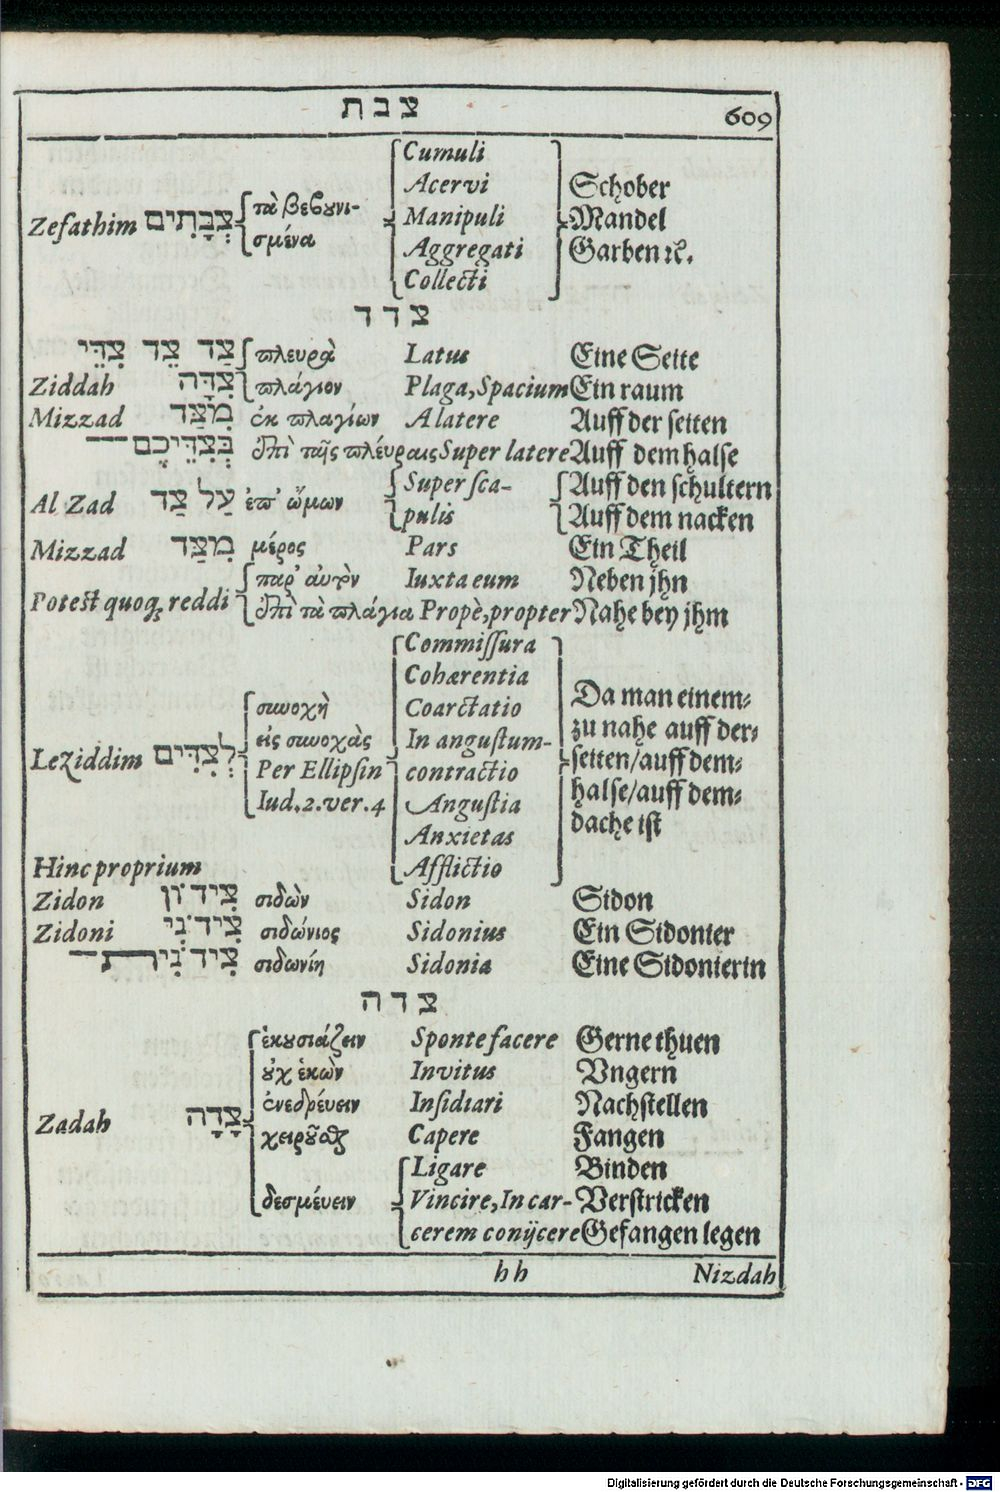 צבת 609
Cumuli
Acervi Schober
Zefathim צְבָתִים τὰ βεβουνι- Manipuli Mandel
σμένα Aggregati Garben ꝛc.
Collecti
צדד
צַד צֵד צִדֵּי πλευρὰ Latus Eine Seite
Ziddah צִדָּה πλάγιον Plaga, Spacium Ein raum
Mizzad מִצַּד ἐκ πλαγίων A latere Auff der seiten
בְּצִדֵּיכֶם ἐπὶ ταῖς πλέυραις Super latere Auff dem halse
Al Zad עַל צַד ἐπ' ὤμων Super sca- Auff den schultern
pulis Auff dem nacken
Mizzad מִצַּד μέρος Pars Ein Theil
παρ' ἀυτὸν Iuxta eum Neben jhn
Potest quoq; reddi ἐπὶ τὰ πλάγια Propè, propter Nahe bey jhm
Commissura
Cohærentia
συνοχὴ Coarctatio Da man einem-
εἰς συνοχὰς In angustum- zu nahe auff der-
Leziddim לְצִדִּים Per Ellipsin contractio seiten/auff dem-
Iud. 2. ver. 4 Angustia halse/auff dem-
Anxietas dache ist
Hinc proprium Afflictio
Zidon צִידוֹן σιδὼν Sidon Sidon
Zidoni צִידֹנִי σιδώνιος Sidonius Ein Sidonier
צִידֹנִית σιδωνίη Sidonia Eine Sidonierin
צדה
ἑκουσιάζειν Sponte facere Gerne thuen
οὐχ ἑκὼν Invitus Vngern
ἐνεδρέυειν Insidiari Nachstellen
Zadah צָדָה χειροῦσθαι Capere Fangen
Ligare Binden
δεσμέυειν Vincire, In car- Verstricken
cerem conijcere Gefangen legen
hh Nizdah
Digitalisierung gefördert durch die Deutsche Forschungsgemeinschaft - DFG